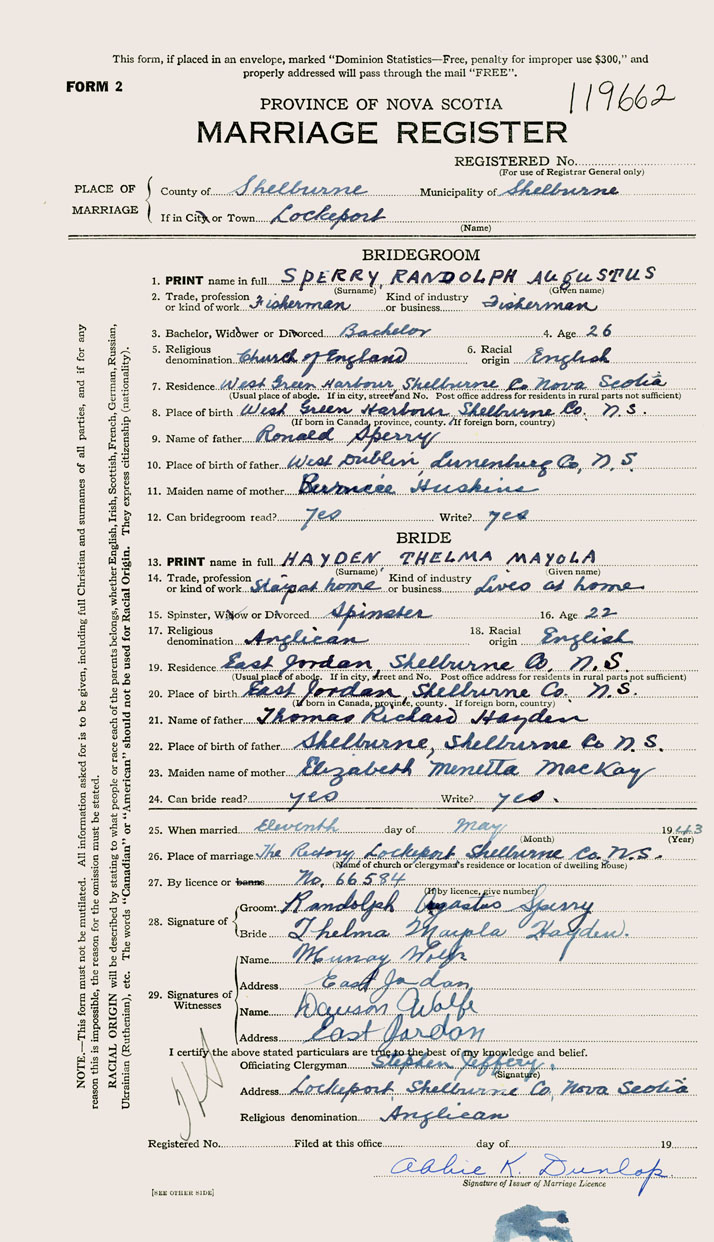 This form, if placed in an envelope, marked "Dominion Statistics—Free, penalty for improper use $300," and
properly addressed will pass through the mail "FREE".
FORM 2
119662
PROVINCE OF NOVA SCOTIA
MARRIAGE REGISTER
REGISTERED No.
(For use of Registrar General only)
PLACE OF MARRIAGE
County of Shelburne Municipality of Shelburne
If in City or Town Lockeport
(Name)
BRIDEGROOM
1. PRINT name in full SPERRY, RANDOLPH AUGUSTUS
(Surname) (Given name)
2. Trade, profession or kind of work Fisherman Kind of industry or business Fisherman
3. Bachelor, Widower or Divorced Bachelor 4. Age 26
5. Religious denomination Church of England 6. Racial origin English
7. Residence West Green Harbour, Shelburne Co Nova Scotia
(Usual place of abode. If in city, street and No. Post office address for residents in rural parts not sufficient)
8. Place of birth West Green Harbour Shelburne Co. N.S.
(If born in Canada, province, county. If foreign born, country)
9. Name of father Ronald Sperry
10. Place of birth of father West Dublin, Lunenburg Co, N.S.
11. Maiden name of mother Bernice Huskins
12. Can bridegroom read? yes Write? yes
BRIDE
13. PRINT name in full HAYDEN, THELMA MAYOLA
(Surname) (Given name)
14. Trade, profession or kind of work Stays at home Kind of industry or business Lives at home
15. Spinster, Widow or Divorced Spinster 16. Age 22
17. Religious denomination Anglican 18. Racial origin English
19. Residence East Jordan, Shelburne Co. N.S.
(Usual place of abode. If in city, street and No. Post office address for residents in rural parts not sufficient)
20. Place of birth East Jordan, Shelburne Co. N.S.
(If born in Canada, province, county. If foreign born, country)
21. Name of father Thomas Richard Hayden
22. Place of birth of father Shelburne, Shelburne Co N.S.
23. Maiden name of mother Elizabeth Menetta MacKay
24. Can bride read? yes Write? yes.
25. When married Eleventh day of May 1943
(Month) (Year)
26. Place of marriage The Rectory Lockeport Shelburne Co. N.S.
(Name of church or clergyman's residence or location of dwelling house)
27. By licence or banns No. 66584
(If by licence, give number)
28. Signature of
Groom Randolph Sperry
Bride Thelma Hayden.
29. Signatures of Witnesses
Name Murray Wolfe
Address East Jordan
Name Dawson Wolfe
Address East Jordan
I certify the above stated particulars are true to the best of my knowledge and belief.
Officiating Clergyman Stephen Jeffery.
(Signature)
Address Lockeport Shelburne Co, Nova Scotia
Religious denomination Anglican
Registered No. Filed at this office day of 19
Abbie K. Dunlop.
Signature of Issuer of Marriage Licence
[SEE OTHER SIDE]
NOTE.—This form must not be mutilated. All information asked for is to be given, including full Christian and surnames of all parties, and if for any
reason this is impossible, the reason for the omission must be stated.
RACIAL ORIGIN will be described by stating to what people or race each of the parents belongs, whether English, Irish, Scottish, French, German, Russian,
Ukrainian (Ruthenian), etc. The words "Canadian" or "American" should not be used for Racial Origin. They express citizenship (nationality).